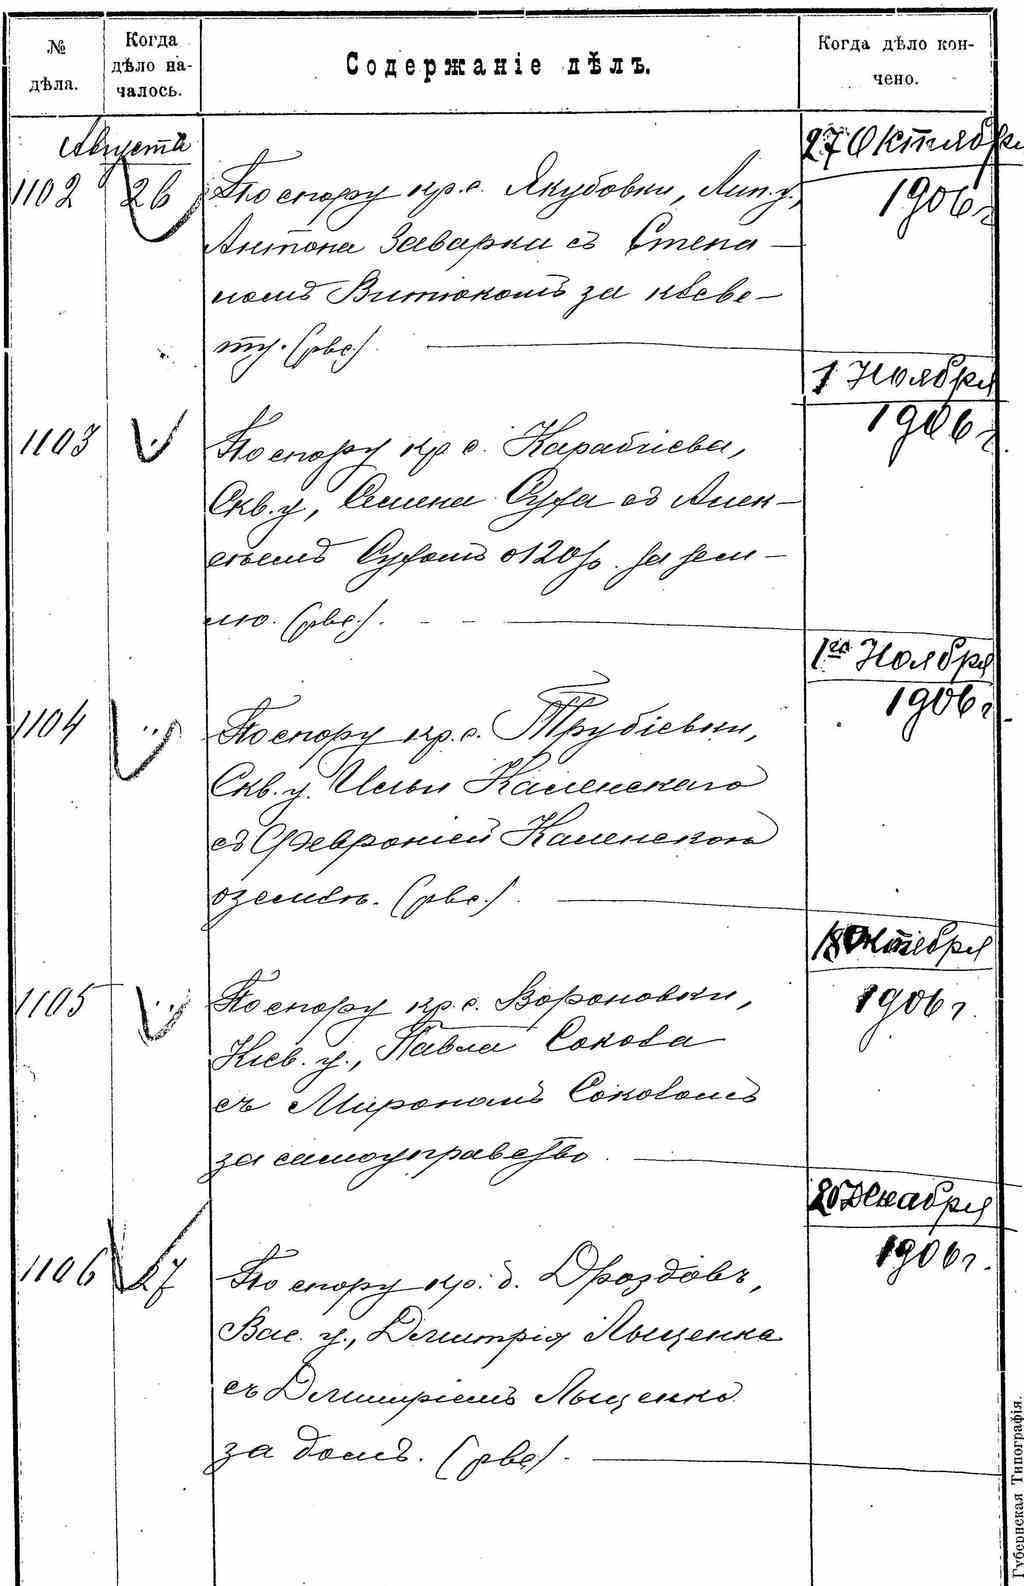 № дѣла.
Когда дѣло на-
чалось.
Содержаніе дѣлъ.
Когда дѣло кон-
чено.
Августа
1102 26 По спору кр. с. Якубовки, Лип. у.,
Антона Заварки съ Степа-
номъ Витюкомъ за клеве-
ту. (рвс.).
27 Октября
1906 г.
1103 По спору кр. с. Карабчіева,
Скв. у., Семена Суфа съ Алек-
сѣемъ Суфомъ о 120 р. за зем-
лю. (рвс.).
1 Ноября
1906 г.
1104 По спору кр. с. Трубіевки,
Скв. у. Ильи Каленскаго
съ Февроніей Каленскою
о землѣ. (рвс.).
1го Ноября
1906 г.
1105 По спору кр. с. Вороновки,
Кіев. у., Павла Сокова
съ Мирономъ Соковомъ
за самоуправство.
18 Октября
1906 г.
1106 27 По спору кр. д. Дроздовъ,
Вас. у., Дмитрія Лыщенка
съ Дмитріемъ Лыщенко
за домъ. (рвс.).
20 Декабря
1906 г.
Губернская Типографія.